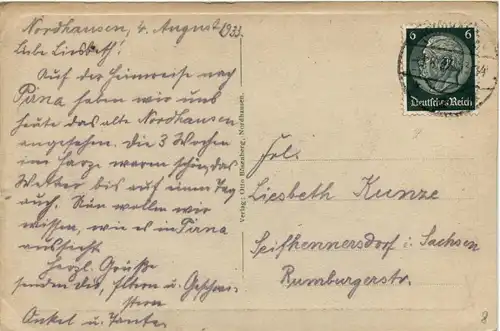 Nordhausen, 4. August 1933.
Liebe Liesbeth!
Auf der Heimreise nach
Pirna haben wir uns
heute das alte Nordhausen
angesehen. Die 3 Wochen
im Harze waren schön, das
Wetter bis auf einen Tag
auch. Nun wollen wir
wissen, wie es in Pirna
aussieht.
Herzl. Grüße
senden dir, Eltern u. Geschwi-
stern
Onkel u. Tante.
Verlag: Otto Rosenberg, Nordhausen.
6 6
Deutsches Reich
Frl.
Liesbeth Kunze
Seifhennersdorf i. Sachsen
Rumburgerstr.
8